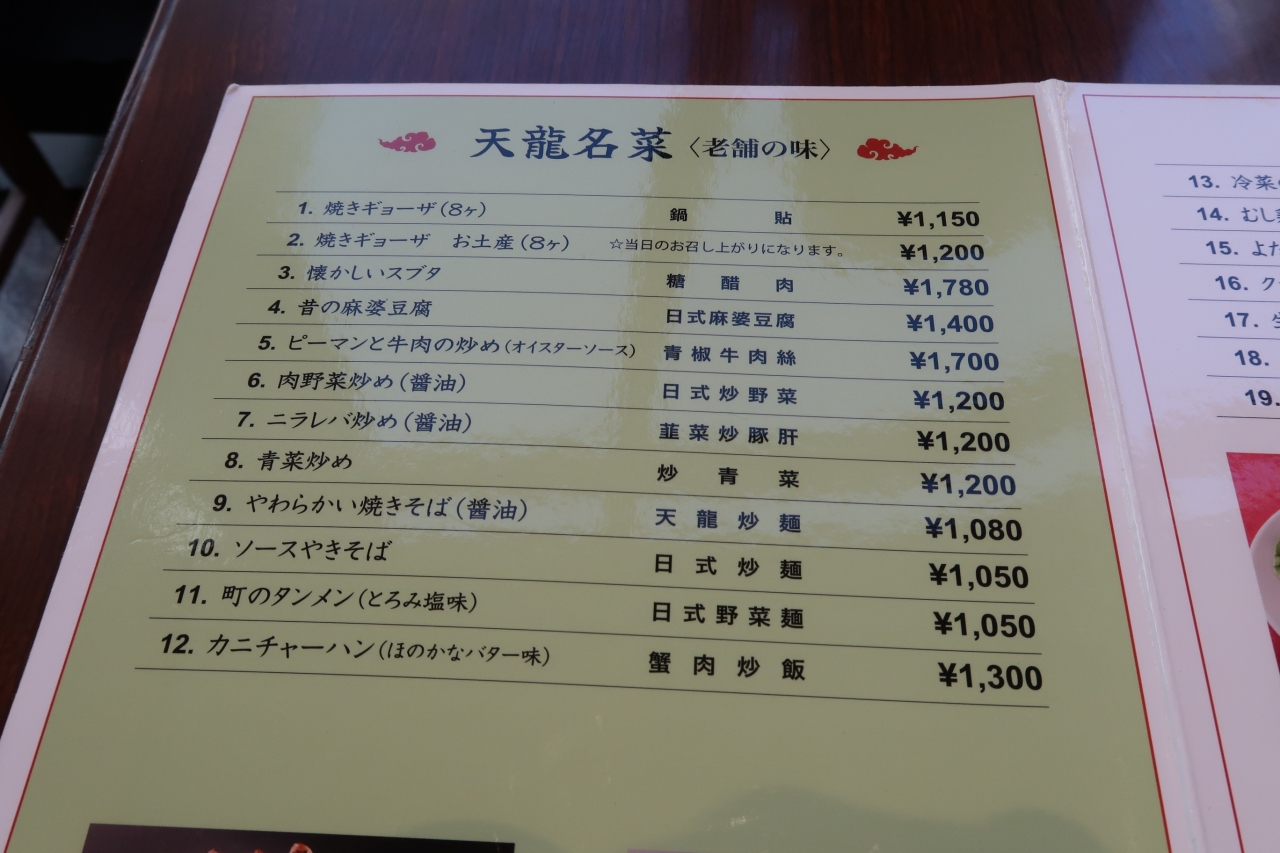 天龍名菜〈老舗の味〉
1. 焼きギョーザ(8ヶ) 鍋貼 ¥1,150
2. 焼きギョーザ お土産(8ヶ) ☆当日のお召し上がりになります。 ¥1,200
3. 懐かしいスブタ 糖醋肉 ¥1,780
4. 昔の麻婆豆腐 日式麻婆豆腐 ¥1,400
5. ピーマンと牛肉の炒め(オイスターソース) 青椒牛肉絲 ¥1,700
6. 肉野菜炒め(醤油) 日式炒野菜 ¥1,200
7. ニラレバ炒め(醤油) 韮菜炒豚肝 ¥1,200
8. 青菜炒め 炒青菜 ¥1,200
9. やわらかい焼きそば(醤油) 天龍炒麺 ¥1,080
10. ソースやきそば 日式炒麺 ¥1,050
11. 町のタンメン(とろみ塩味) 日式野菜麺 ¥1,050
12. カニチャーハン(ほのかなバター味) 蟹肉炒飯 ¥1,300
13. 冷菜
14. むし
15. よだ
16. ク
17.
18.
19.